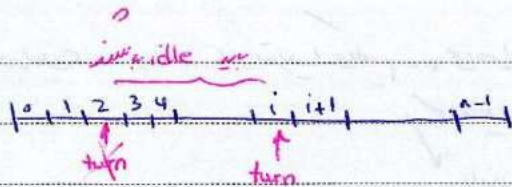 idle
0 1 2 3 4 i i+1 n-1
turn turn